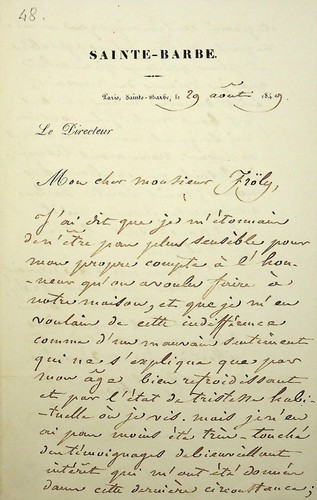 48.
SAINTE-BARBE.
Paris, Sainte-Barbe, le 29 août 1849.
Le Directeur
Mon cher monsieur
J'ai dit que je m'étonnais
de n'être pas plus sensible pour
mon propre compte à l'hon-
neur qu'on a voulu faire à
notre maison, et que je m'en
voulais de cette indifférence
comme d'un mauvais sentiment
qui ne s'explique que par
mon âge bien refroidissant
et par l'état de tristesse habi-
tuelle où je vis. mais je n'en
ai pas moins été très-touché
des témoignages de bienveillant
intérêt qui m'ont été donnés
dans cette dernière circonstance;